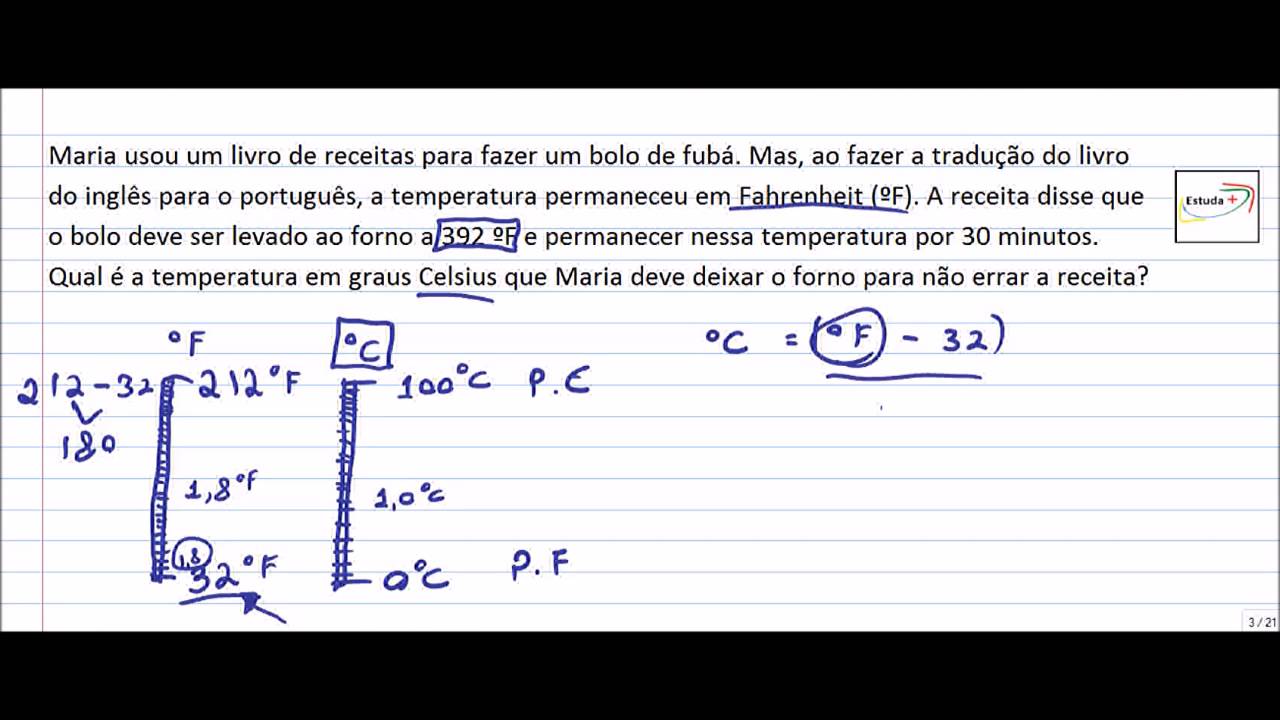 Maria usou um livro de receitas para fazer um bolo de fubá. Mas, ao fazer a tradução do livro
do inglês para o português, a temperatura permaneceu em Fahrenheit (ºF). A receita disse que
o bolo deve ser levado ao forno a 392 ºF e permanecer nessa temperatura por 30 minutos.
Qual é a temperatura em graus Celsius que Maria deve deixar o forno para não errar a receita?
Estuda +
ºF ºC ºC = (ºF - 32)
212-32 212ºF 100ºC P.E
180
1,8ºF 1,0ºC
1,8
32ºF 0ºC P.F
3 / 21